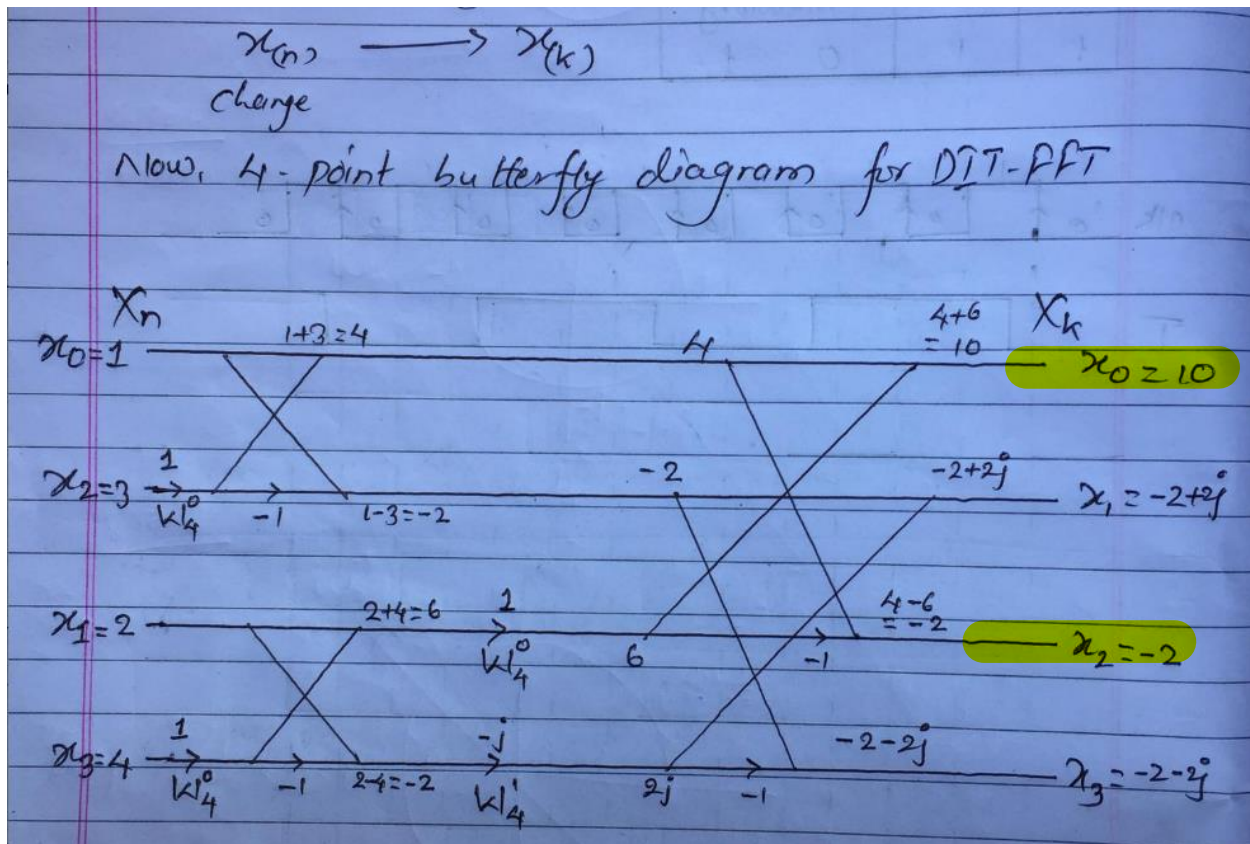 x(n) ⟶ x(k)
Change
Now, 4-point butterfly diagram for DIT-FFT
Xn Xk
x0=1 1+3=4 4 4+6 = 10 x0 = 10
x2=3 1 W4^0 -1 1-3=-2 -2 -2+2j x1 = -2+2j
x1=2 2+4=6 1 W4^0 6 -1 4-6 = -2 x2 = -2
x3=4 1 W4^0 -1 2-4=-2 -j W4^1 2j -1 -2-2j x3 = -2-2j